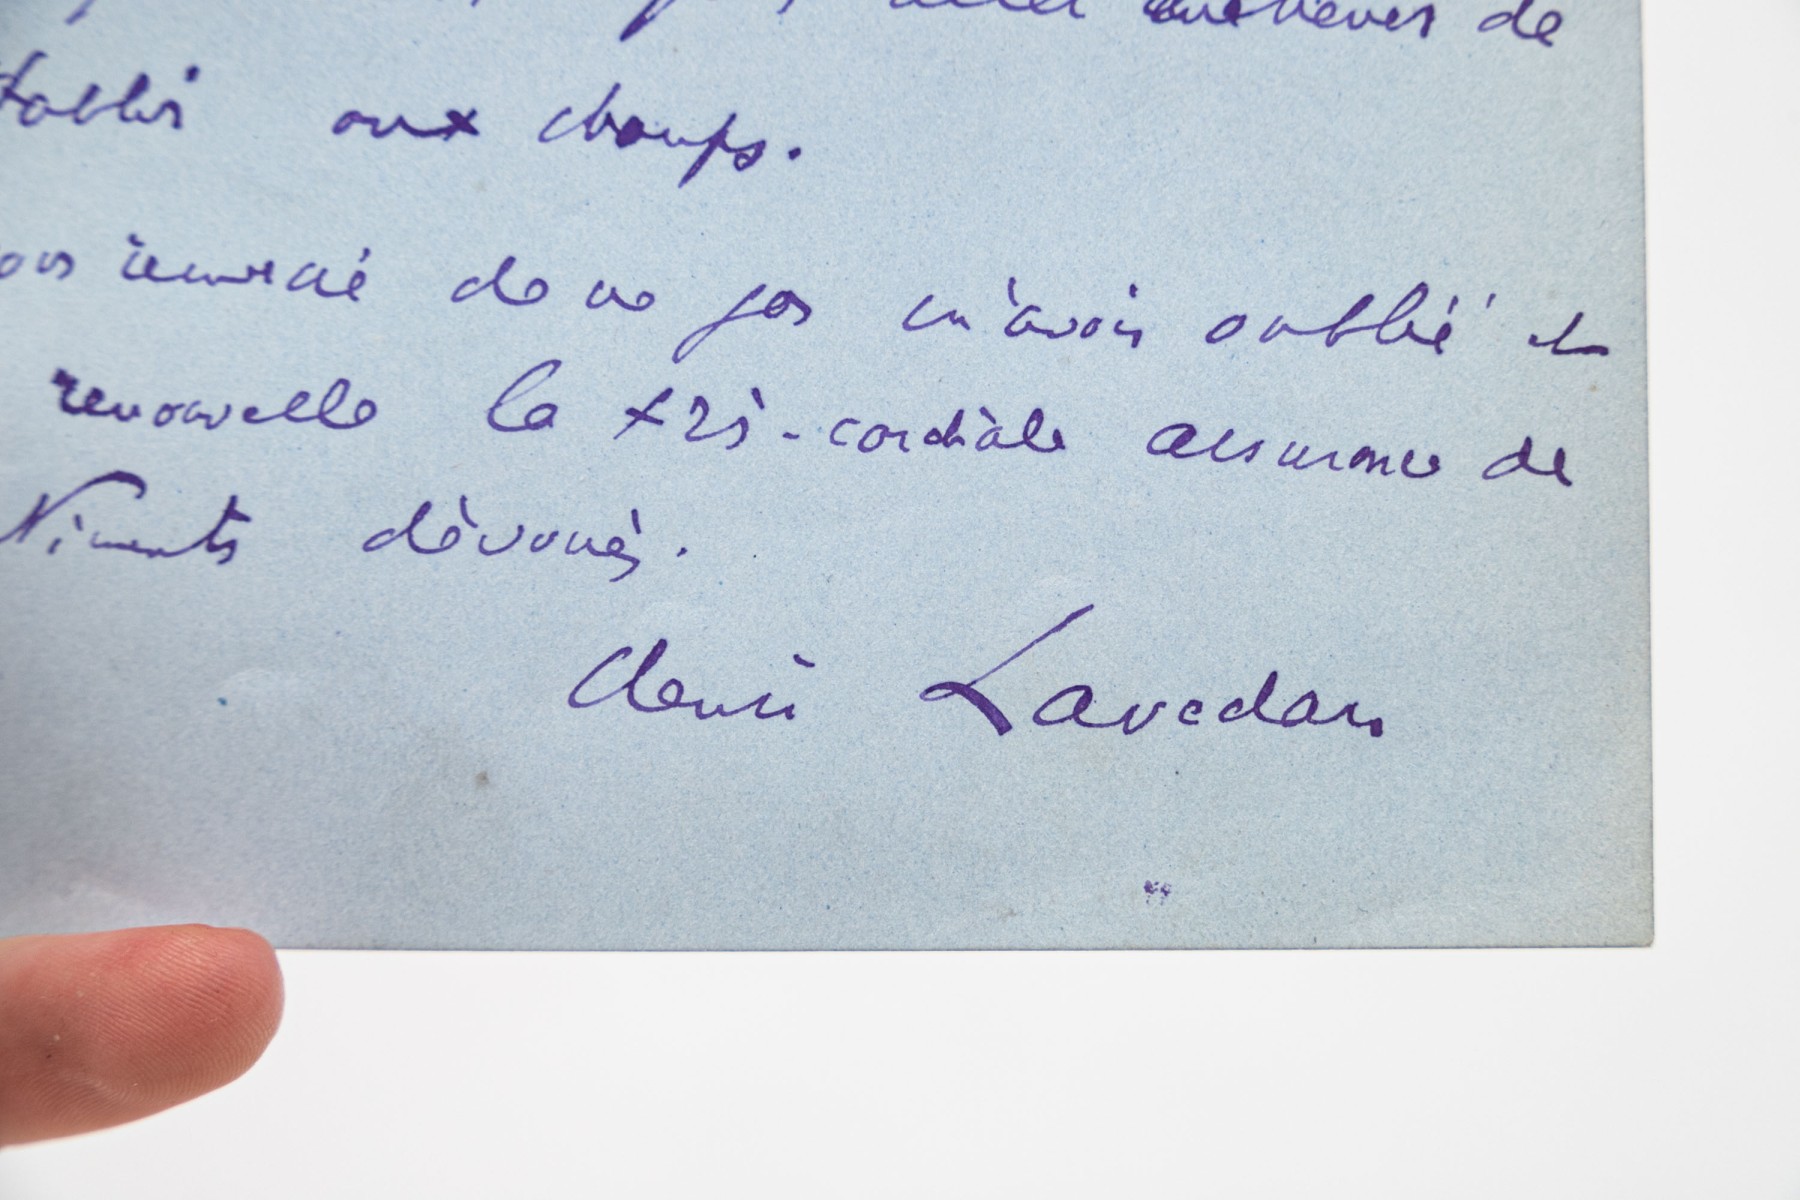 de
établi aux champs.
vous remercie de ne pas m'avoir oublié et
renouvelle la très-cordiale assurance de
sentiments dévoués.
Henri Lavedan